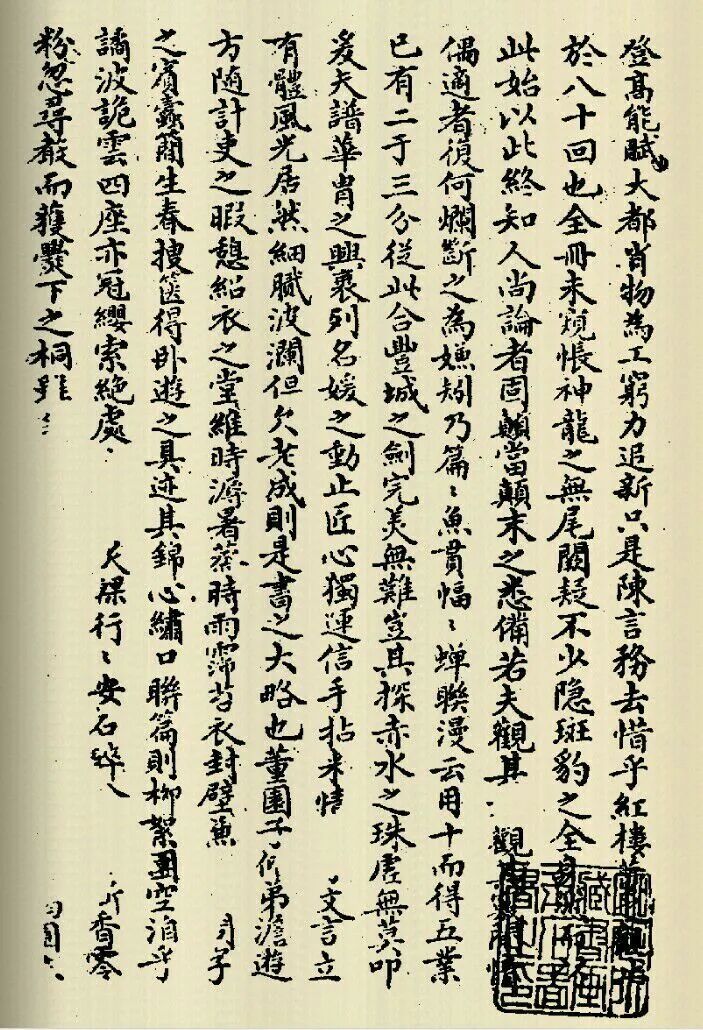 登高能賦大都肖物為工窮力追新只是陳言務去惜乎紅樓
於八十回也全冊未窺悵神龍之無尾闕疑不少隱斑豹之全
此始以此終知人尚論者固顛當顛末之悉備若夫觀其 觀
偶適者復何爛斷之為嫌矧乃篇〻魚貫幅〻蟬聯漫云用十而得五業
已有二于三分從此合豐城之劍完美無難豈其探赤水之珠虛無莫叩
爰夫譜華胄之興衰列名媛之動止匠心獨運信手拈來情 文言立
有體風光居然細膩波瀾但欠老成則是書之大略也董園子 弟澹遊
方隨計吏之暇憩紹衣之堂維時溽暑蒸時雨霈苔衣封壁魚 字
之賓蠹簡生春搜篋得卧遊之具迹其錦心繡口聯篇則柳絮團空洎乎
譎波詭雲四座亦冠纓索絕處 梁行〻安石碎 香零
粉忽尋聲而獲爨下之桐雖